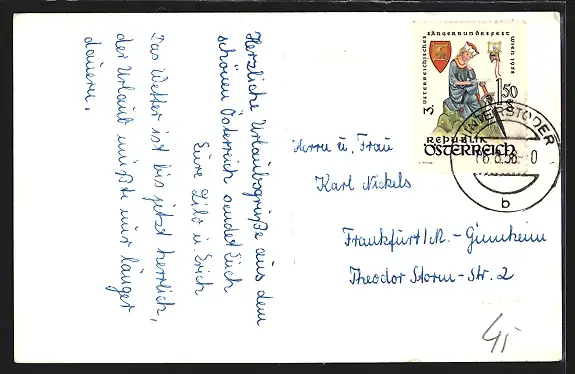 Herzliche Urlaubsgrüße aus dem
schönen Österreich sendet Euch
Eure Lilo u. Erich
Das Wetter ist bis jetzt herrlich,
der Urlaub müßte nur länger
dauern.
3. ÖSTERREICHISCHES SÄNGERBUNDESFEST WIEN 1958
1.50
S
REPUBLIK
ÖSTERREICH
HINTERSTODER
b
Herrn u. Frau
Karl Nickels
Frankfurt/M.-Ginnheim
Theodor Storm-Str. 2